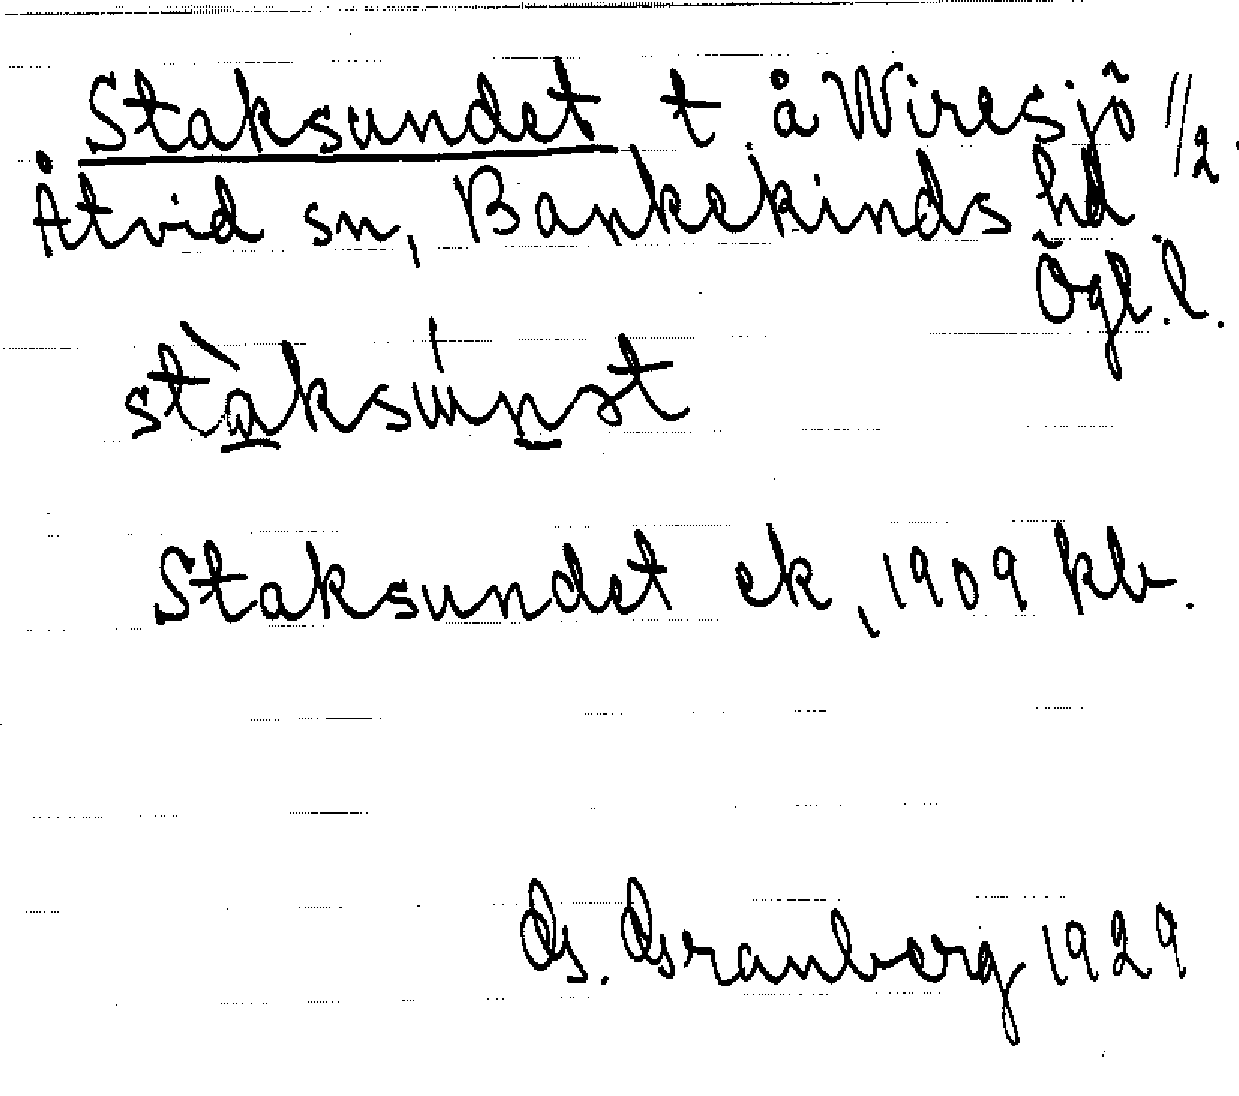 Staksundet t å Wiresjö 1/2.
Åtvid sn, Bankekinds hd
Ögl. l.
Staksundet ek, 1909 kb.
G. Granberg 1929